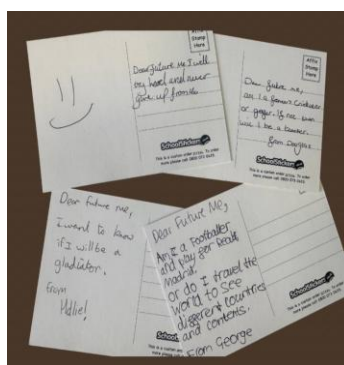 Affix
Stamp
Here
Dear future me I will
try hard and never
give up from
SchoolStickers
This is a custom order
more please call 0800 073 0455
Affix
Stamp
Here
Dear future me,
am I a famous Cricketer
or If not
will I be a teacher.
from Douglas
SchoolStickers
This is a custom order To order
more please call 0800 073 0455
Dear future me,
I want to know
if I will be a
gladiator.
From
School
This is a custom
more please call
Dear Future Me,
Am I a Footballer
and play for Real
Madrid.
or do I travel the
world to see
different countries
and
From George
SchoolStickers
This is a custom order To order
more please call 0800 073 0455